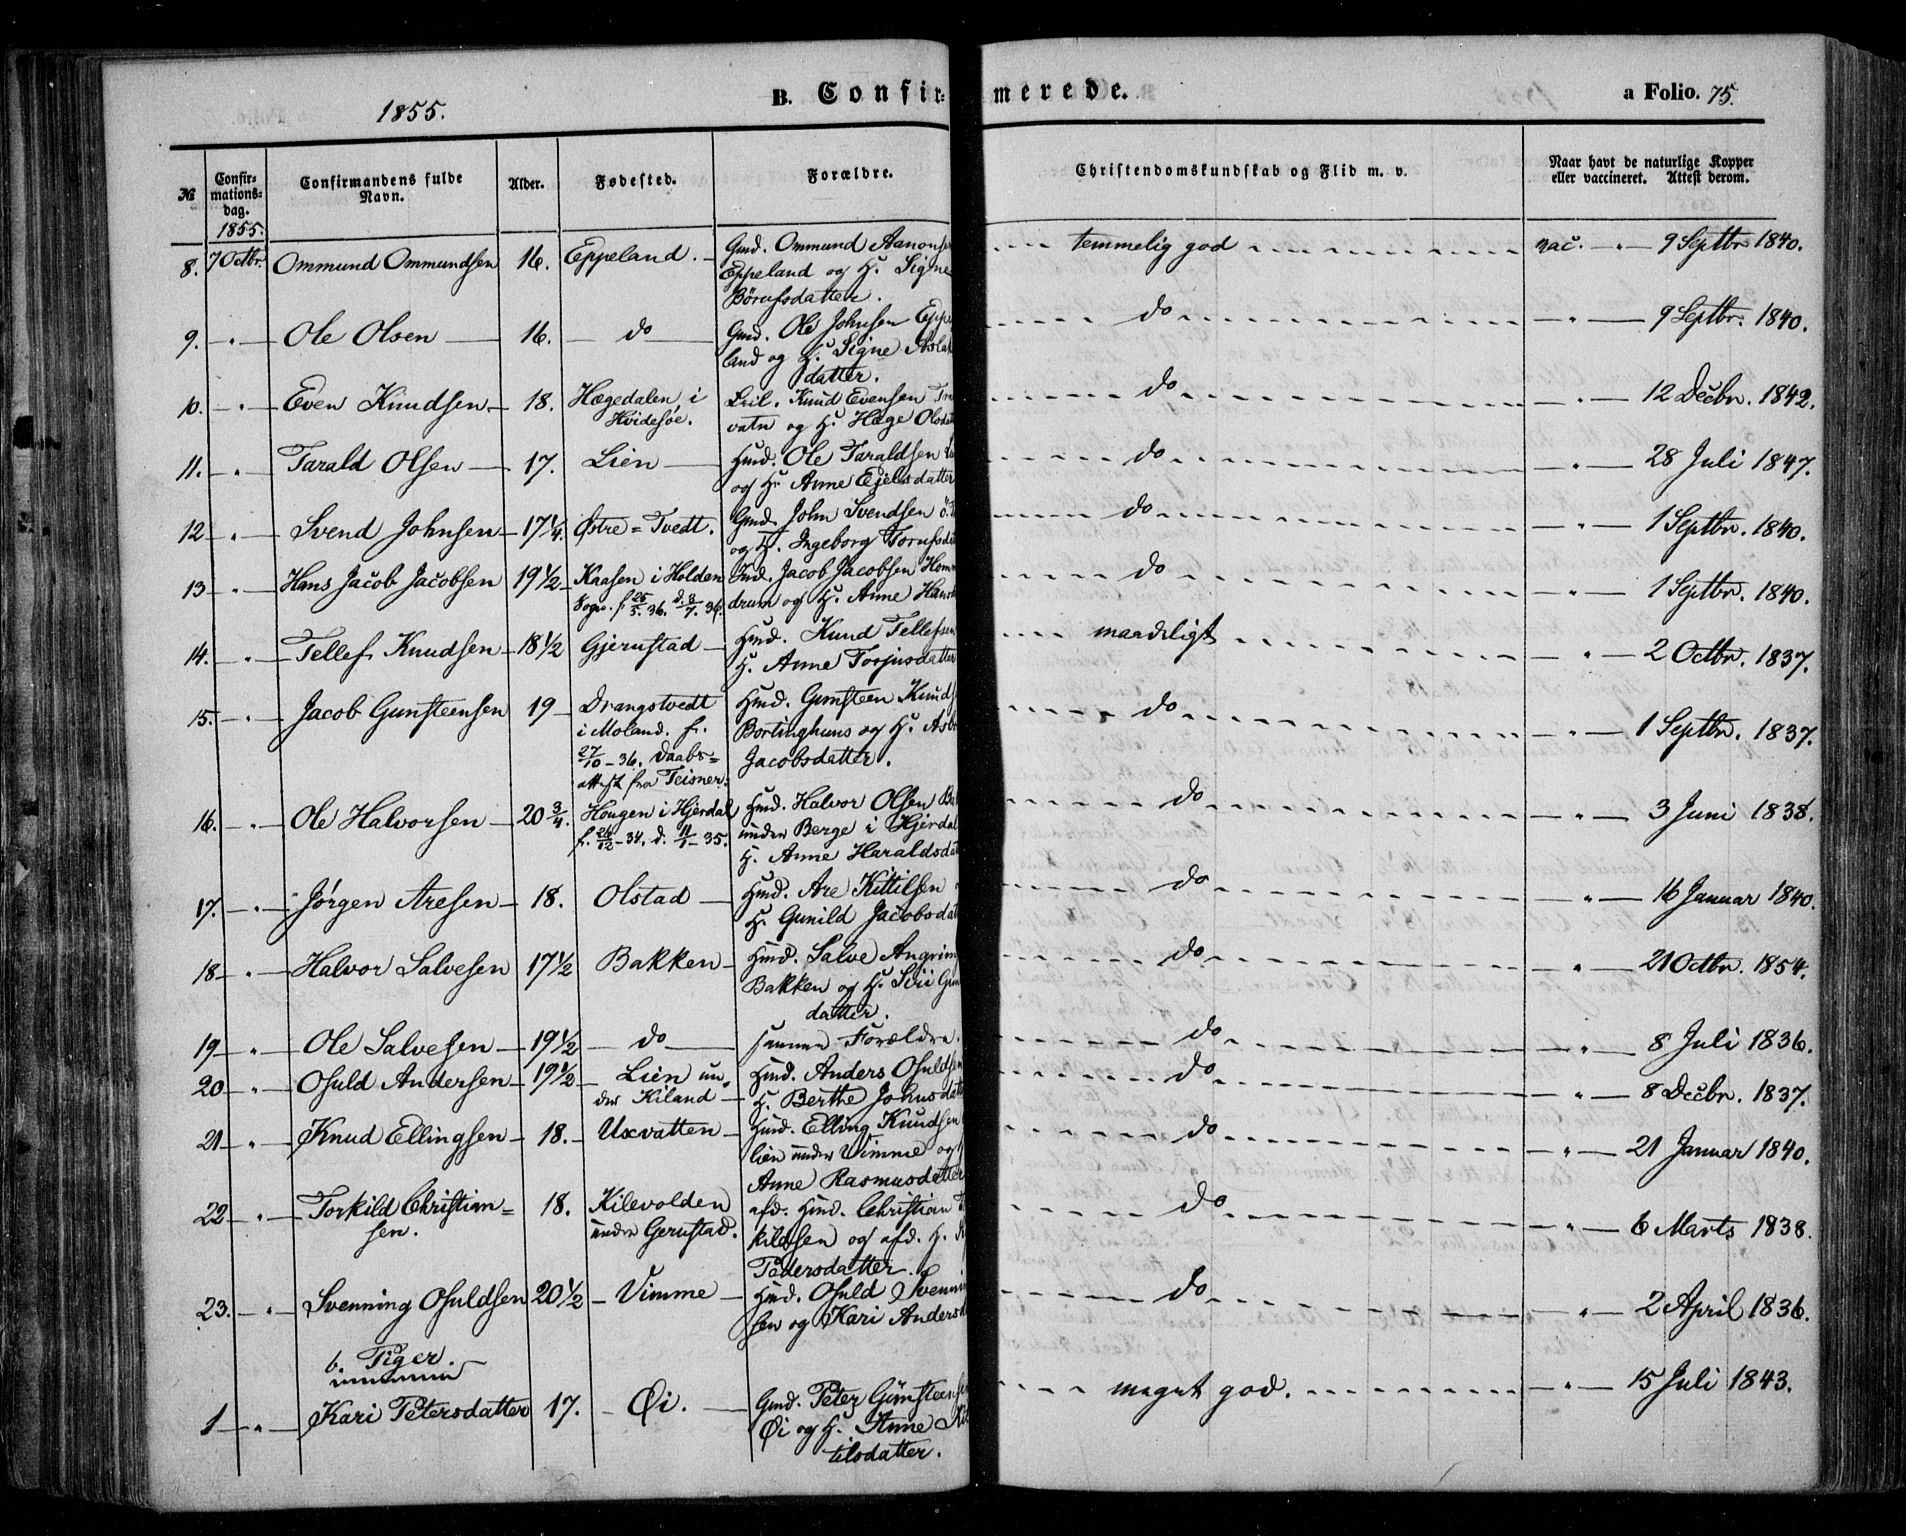 1855. B. Confirmerede. a Folio. 75.
№ Confirmationsdag. 1855. Confirmandens fulde Navn. Alder. Fødested. Forældre. Christendomskundskab og Flid m. v. Naar havt de naturlige Kopper eller vaccineret. Attest derom.
8. 7 Octbr. Ommund Ommundsen 16. Eppeland. Gmd. Ommund Aanons temmelig god vac. " 9 Septbr 1840.
Eppeland og H. Signe
Børufsdatter.
9. " Ole Olsen 16. do Gmd. Ole Johnsen Eppe do " 9 Septbr. 1840.
land og H. Signe Aslak
datter.
10. " Even Knudsen 18. Hægedalen i Knud Evensen do " 12 Decbr. 1842.
Hvidesøe. vatn og H. Hæge Olsdat
11. " Tarald Olsen 17. Lien Hmd. Ole Taraldsen do " 28 Juli 1847.
og H. Anne Ejelsdatter
12 " Svend Johnsen 17 1/4. Østre = Tvedt. Gmd. John Svendsen do " 1 Septbr. 1840.
og H. Ingeborg Torufsdat
13 " Hans Jacob Jacobsen 19 1/2 Kaasen i Holden Ind. Jacob Jacobsen Hom do " 1 Septbr. 1840.
Sogn. f. 25/5. 36. d. 3/7. 36. drum og H. Anne Hans
14. " Tellef Knudsen 18 1/2 Gjerustad Hmd. Knud Tellefsen maadeligt " 2 Octbr. 1837.
H. Anne Torjusdatter
15. " Jacob Gunsteensen 19 Drangstvedt Hmd. Gunsteen Knuds do " 1 Septbr. 1837.
i Moland. f. Bortinghuus og H. Asb
27/10 - 36. Daabs= Jacobsdatter.
attest fra Teisner.
16. " Ole Halvorsen 20 3/4. Hougen i Hjerdal Hmd. Halvor Olsen do " 3 Juni 1838.
f. 26/12 - 34. d. 11/1 - 35. under Berge i Hjerdal
H. Anne Haraldsdat
17. " Jørgen Aresen 18. Olstad Hmd. Are Kittilsen do " 16 Januar 1840.
H. Gunild Jacobsdat
18 " Halvor Salvesen 17 1/2 Bakken Hmd. Salve Angrim do " 21 Octbr. 1854.
Bakken og H. Siri Gun
datter.
19 " Ole Salvesen 19 1/2 do samme Forældre. do " 8 Juli 1836.
20 " Osuld Andersen 19 1/2 Lien un= Hmd. Anders Osuldsen do " 8 Decbr. 1837.
der Kiland H. Berthe Johnsdatt
21 " Knud Ellingsen 18. Uxvatten Hmd. Elling Knudsen do " 21 Januar 1840.
lien under Vimme og
Anne Rasmusdatter
22 " Torkild Christian= 18. Kilevolden afd. Hmd. Christian T do " 6 Marts 1838.
sen. under Gerustad. kildsen og afd. H.
Pedersdatter.
23. " Svenning Osuldsen 20 1/2 Vimme Hmd. Osuld Svennin do " 2 April 1836.
sen og Kari Anders
b. Piger.
1 " Kari Petersdatter 17. Øi. Gmd. Peter Gunsteens meget god. " 15 Juli 1843.
Øi og H. Anne Kit
tilsdatter.